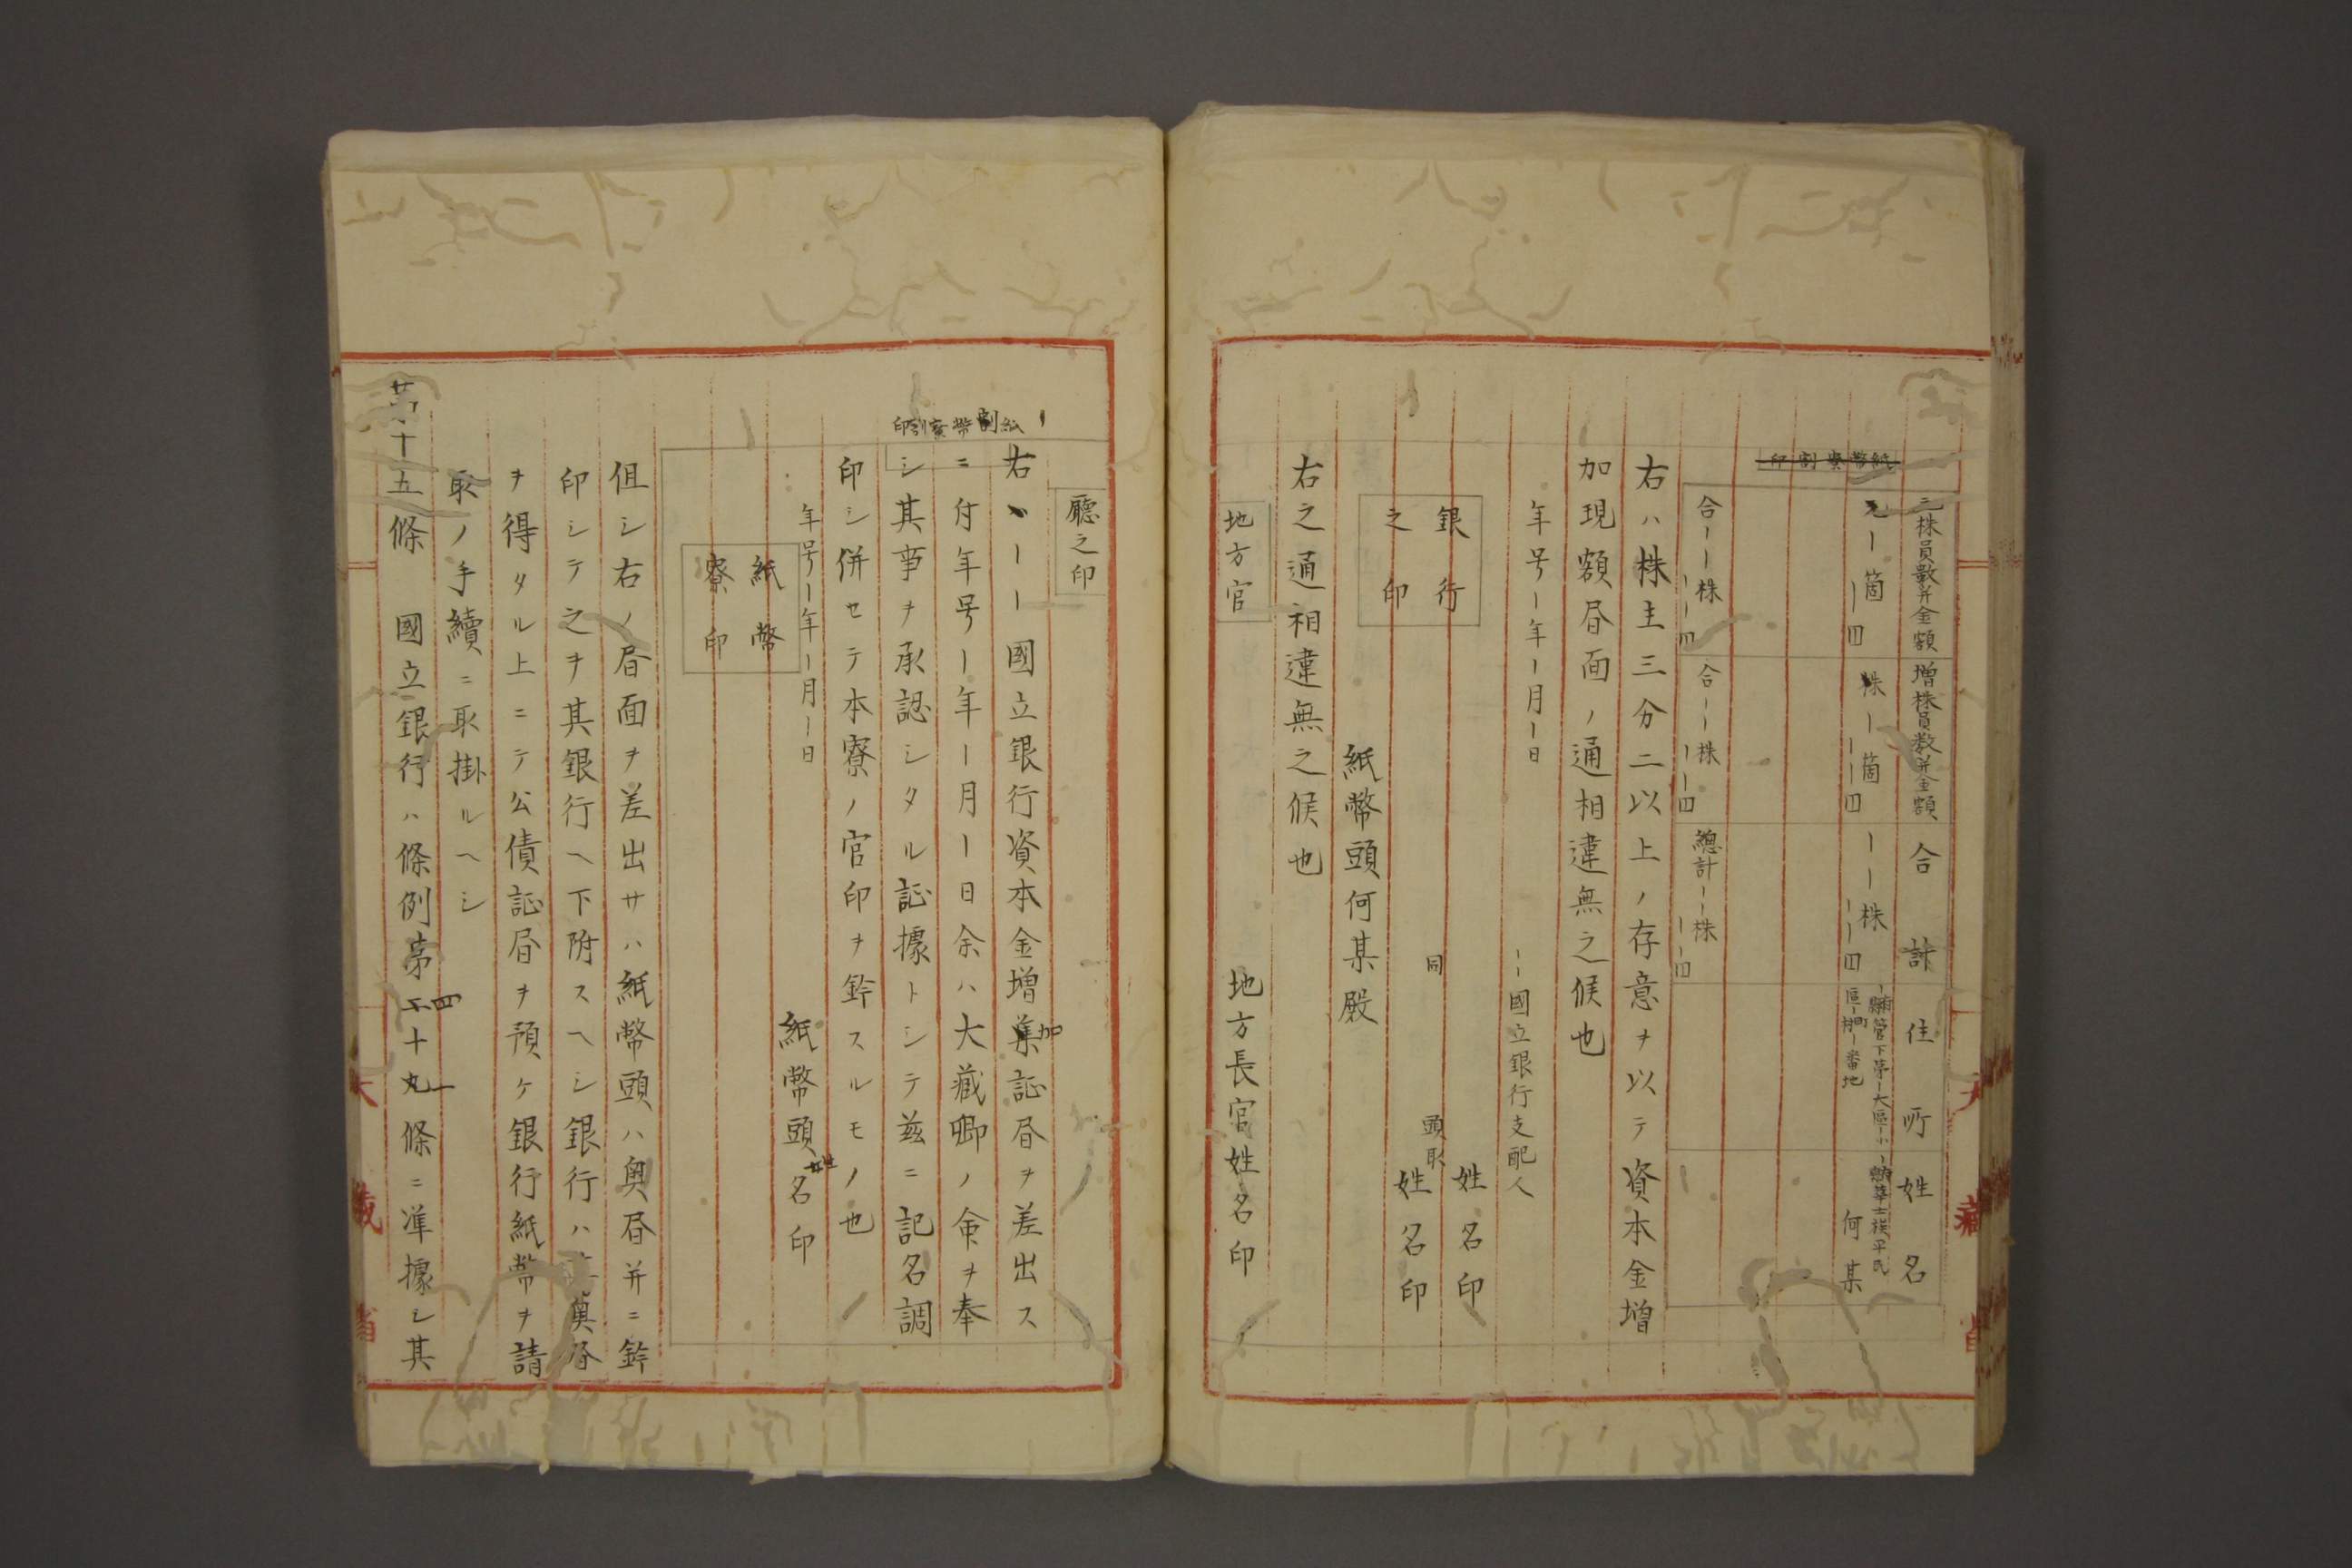 元株員數并金額 増株員数并金額 合計 住所 姓名
元ー箇 株ー箇 ーー株 ー管下第ー大區ー小 ー華士族平民
ー四 ーー四 ーー四 區ー町ー番地 何某
紙幣寮割印
合ーー株 合ーー株 總計ーー株
ーー四 ーー四 ーー四
右ハ株主三分二以上ノ存意ヲ以テ資本金增
加現額昏面ノ通相違無之候也
年号ー年ー月ー日
ーー國立銀行支配人
銀行之印
姓名印
同 頭取
姓名印
紙幣頭何某殿
右之通相違無之候也
地方官
地方長官姓名印
廳之印
紙幣寮割印
右ーー國立銀行資本金增加証昏ヲ差出ス
ニ付年号ー年ー月ー日余ハ大藏卿ノ命ヲ奉
シ其事ヲ承認シタル証據トシテ茲ニ記名調
印シ併セテ本寮ノ官印ヲ鈐スルモノ也
年号ー年ー月ー日
紙幣頭姓名印
紙幣寮印
但シ右ノ昏面ヲ差出サハ紙幣頭ハ奧昏并ニ鈐
印シテ之ヲ其銀行ヘ下附スヘシ銀行ハ其奧昏
ヲ得タル上ニテ公債証昏ヲ預ケ銀行紙幣ヲ請
取ノ手續ニ取掛ルヘシ
第十五條 國立銀行ハ條例第四十一條ニ準據シ其
大藏省
大藏省